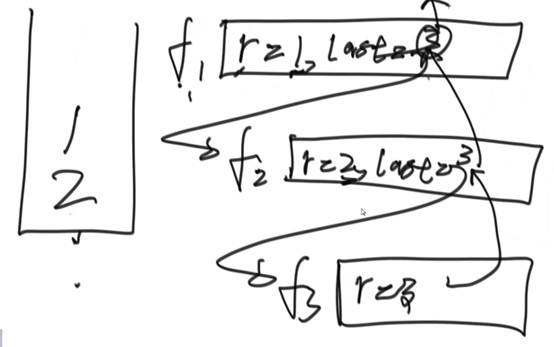 f1 r=1, last=3
1
f2 r=2, last=3
2
f3 r=3